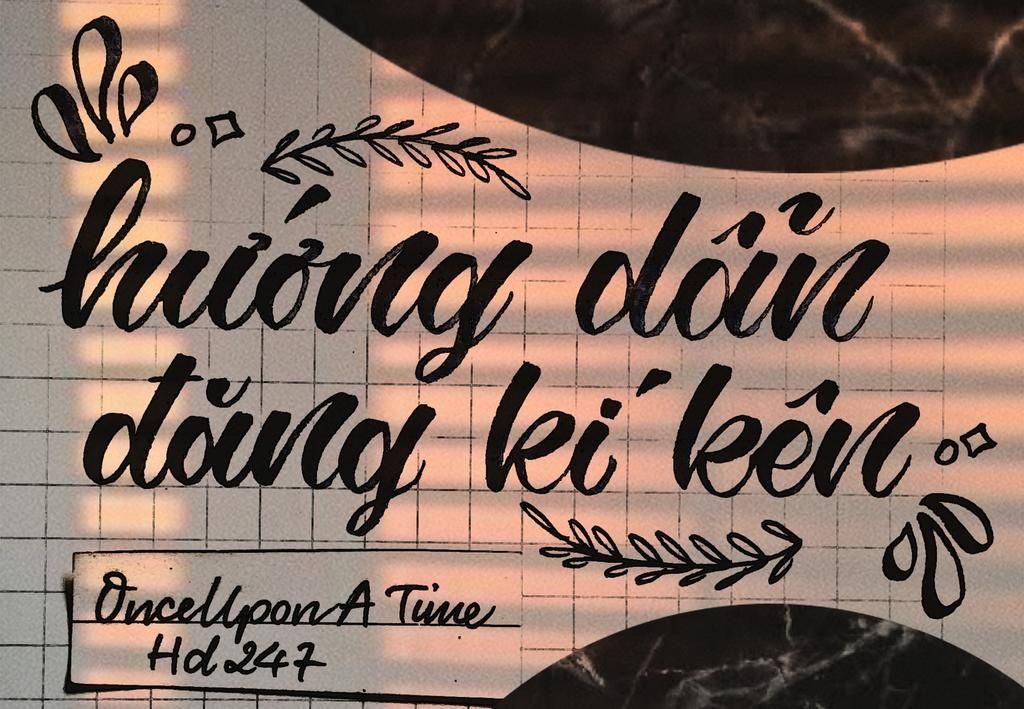 hướng dẫn
đăng kí kên
OnceUponA Time
Hd 247